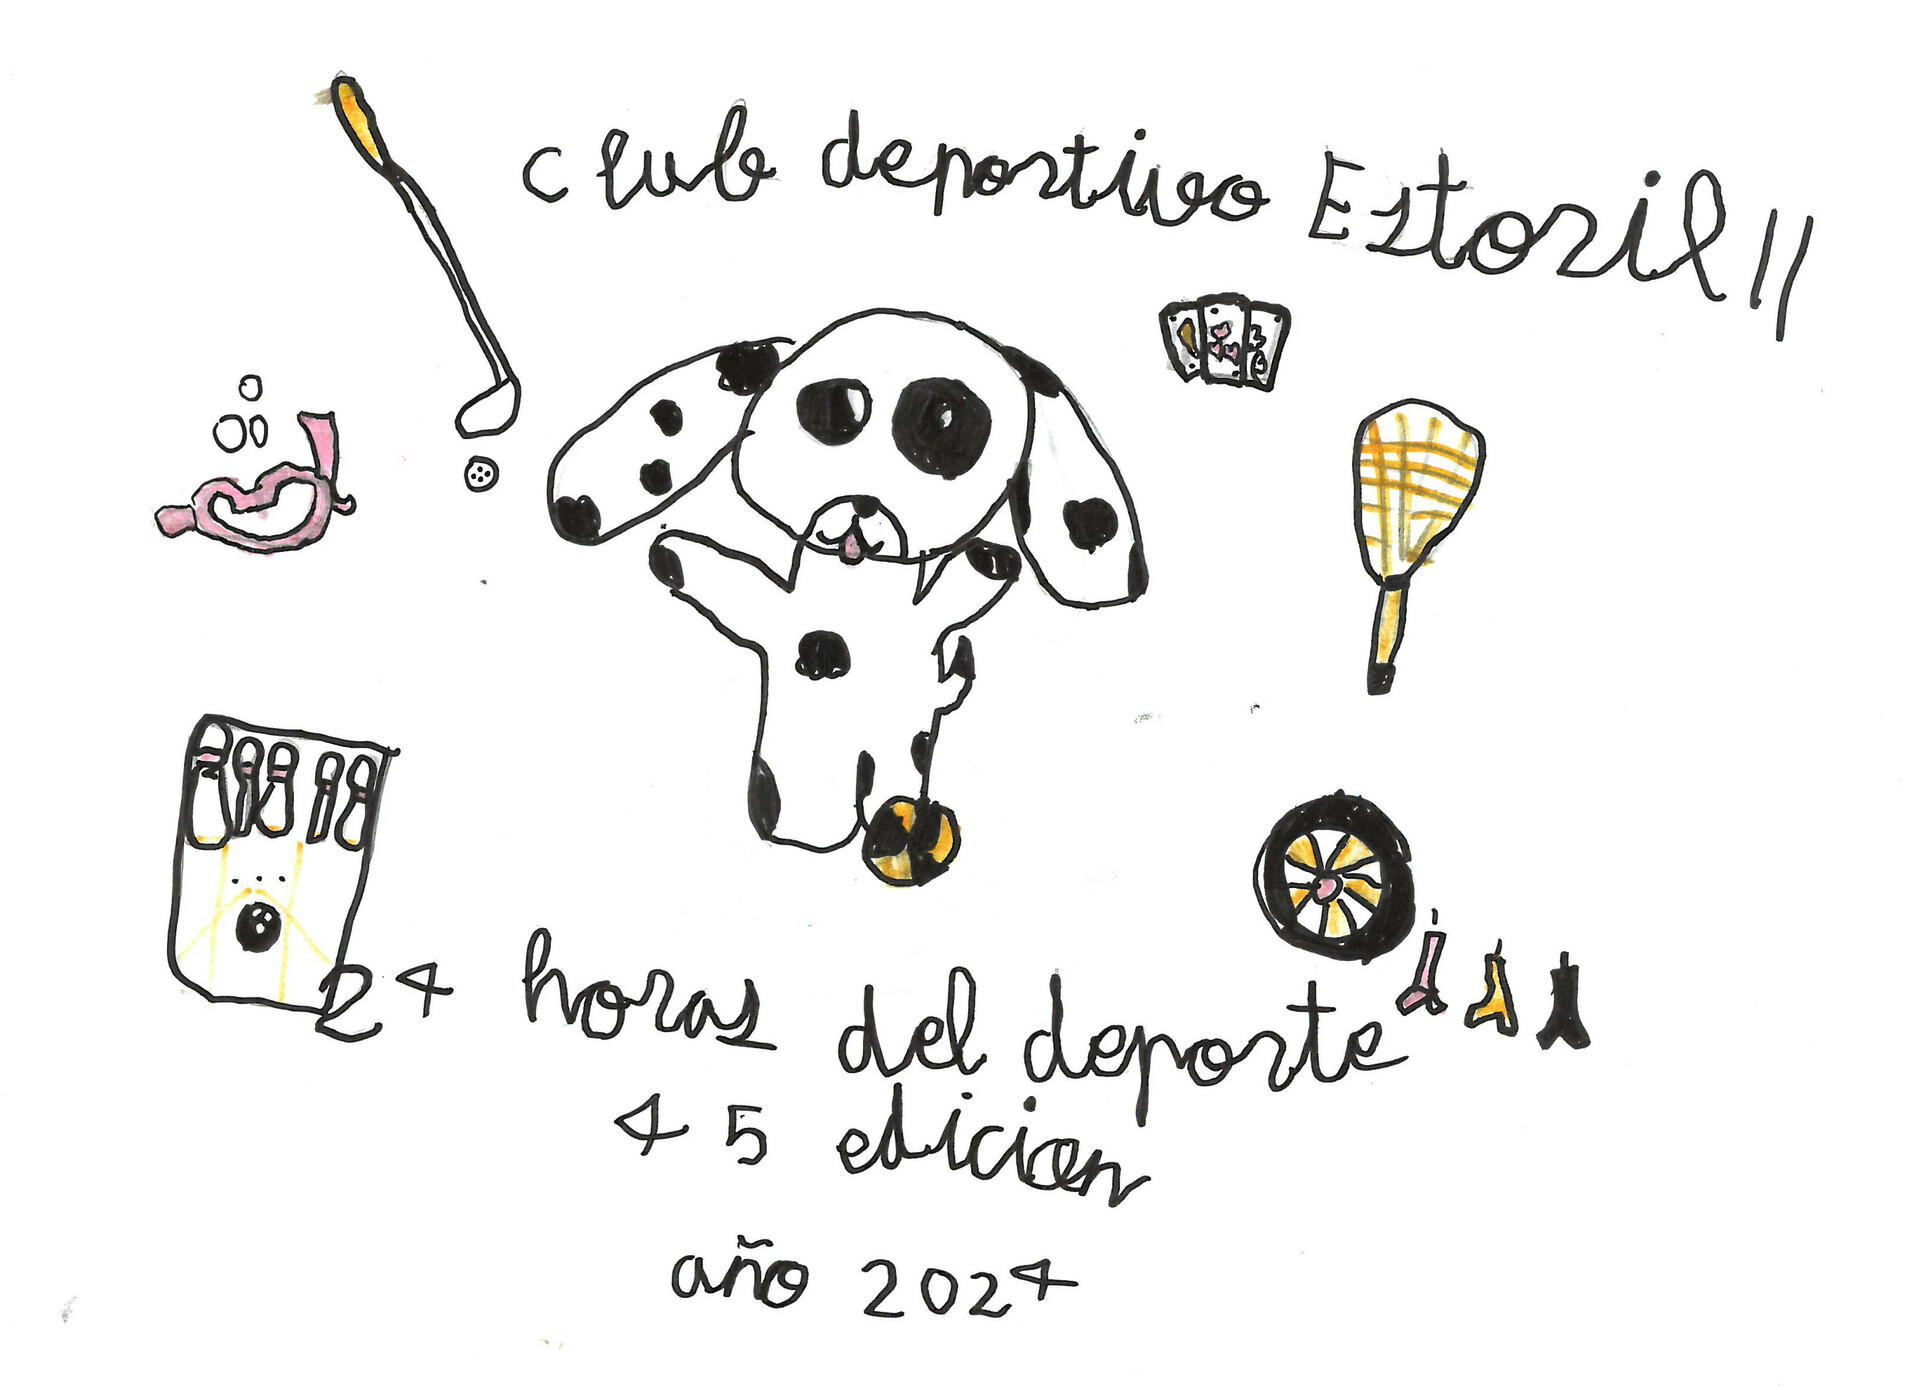 Club deportivo Estoril II
24 horas del deporte
45 edicion
año 2024